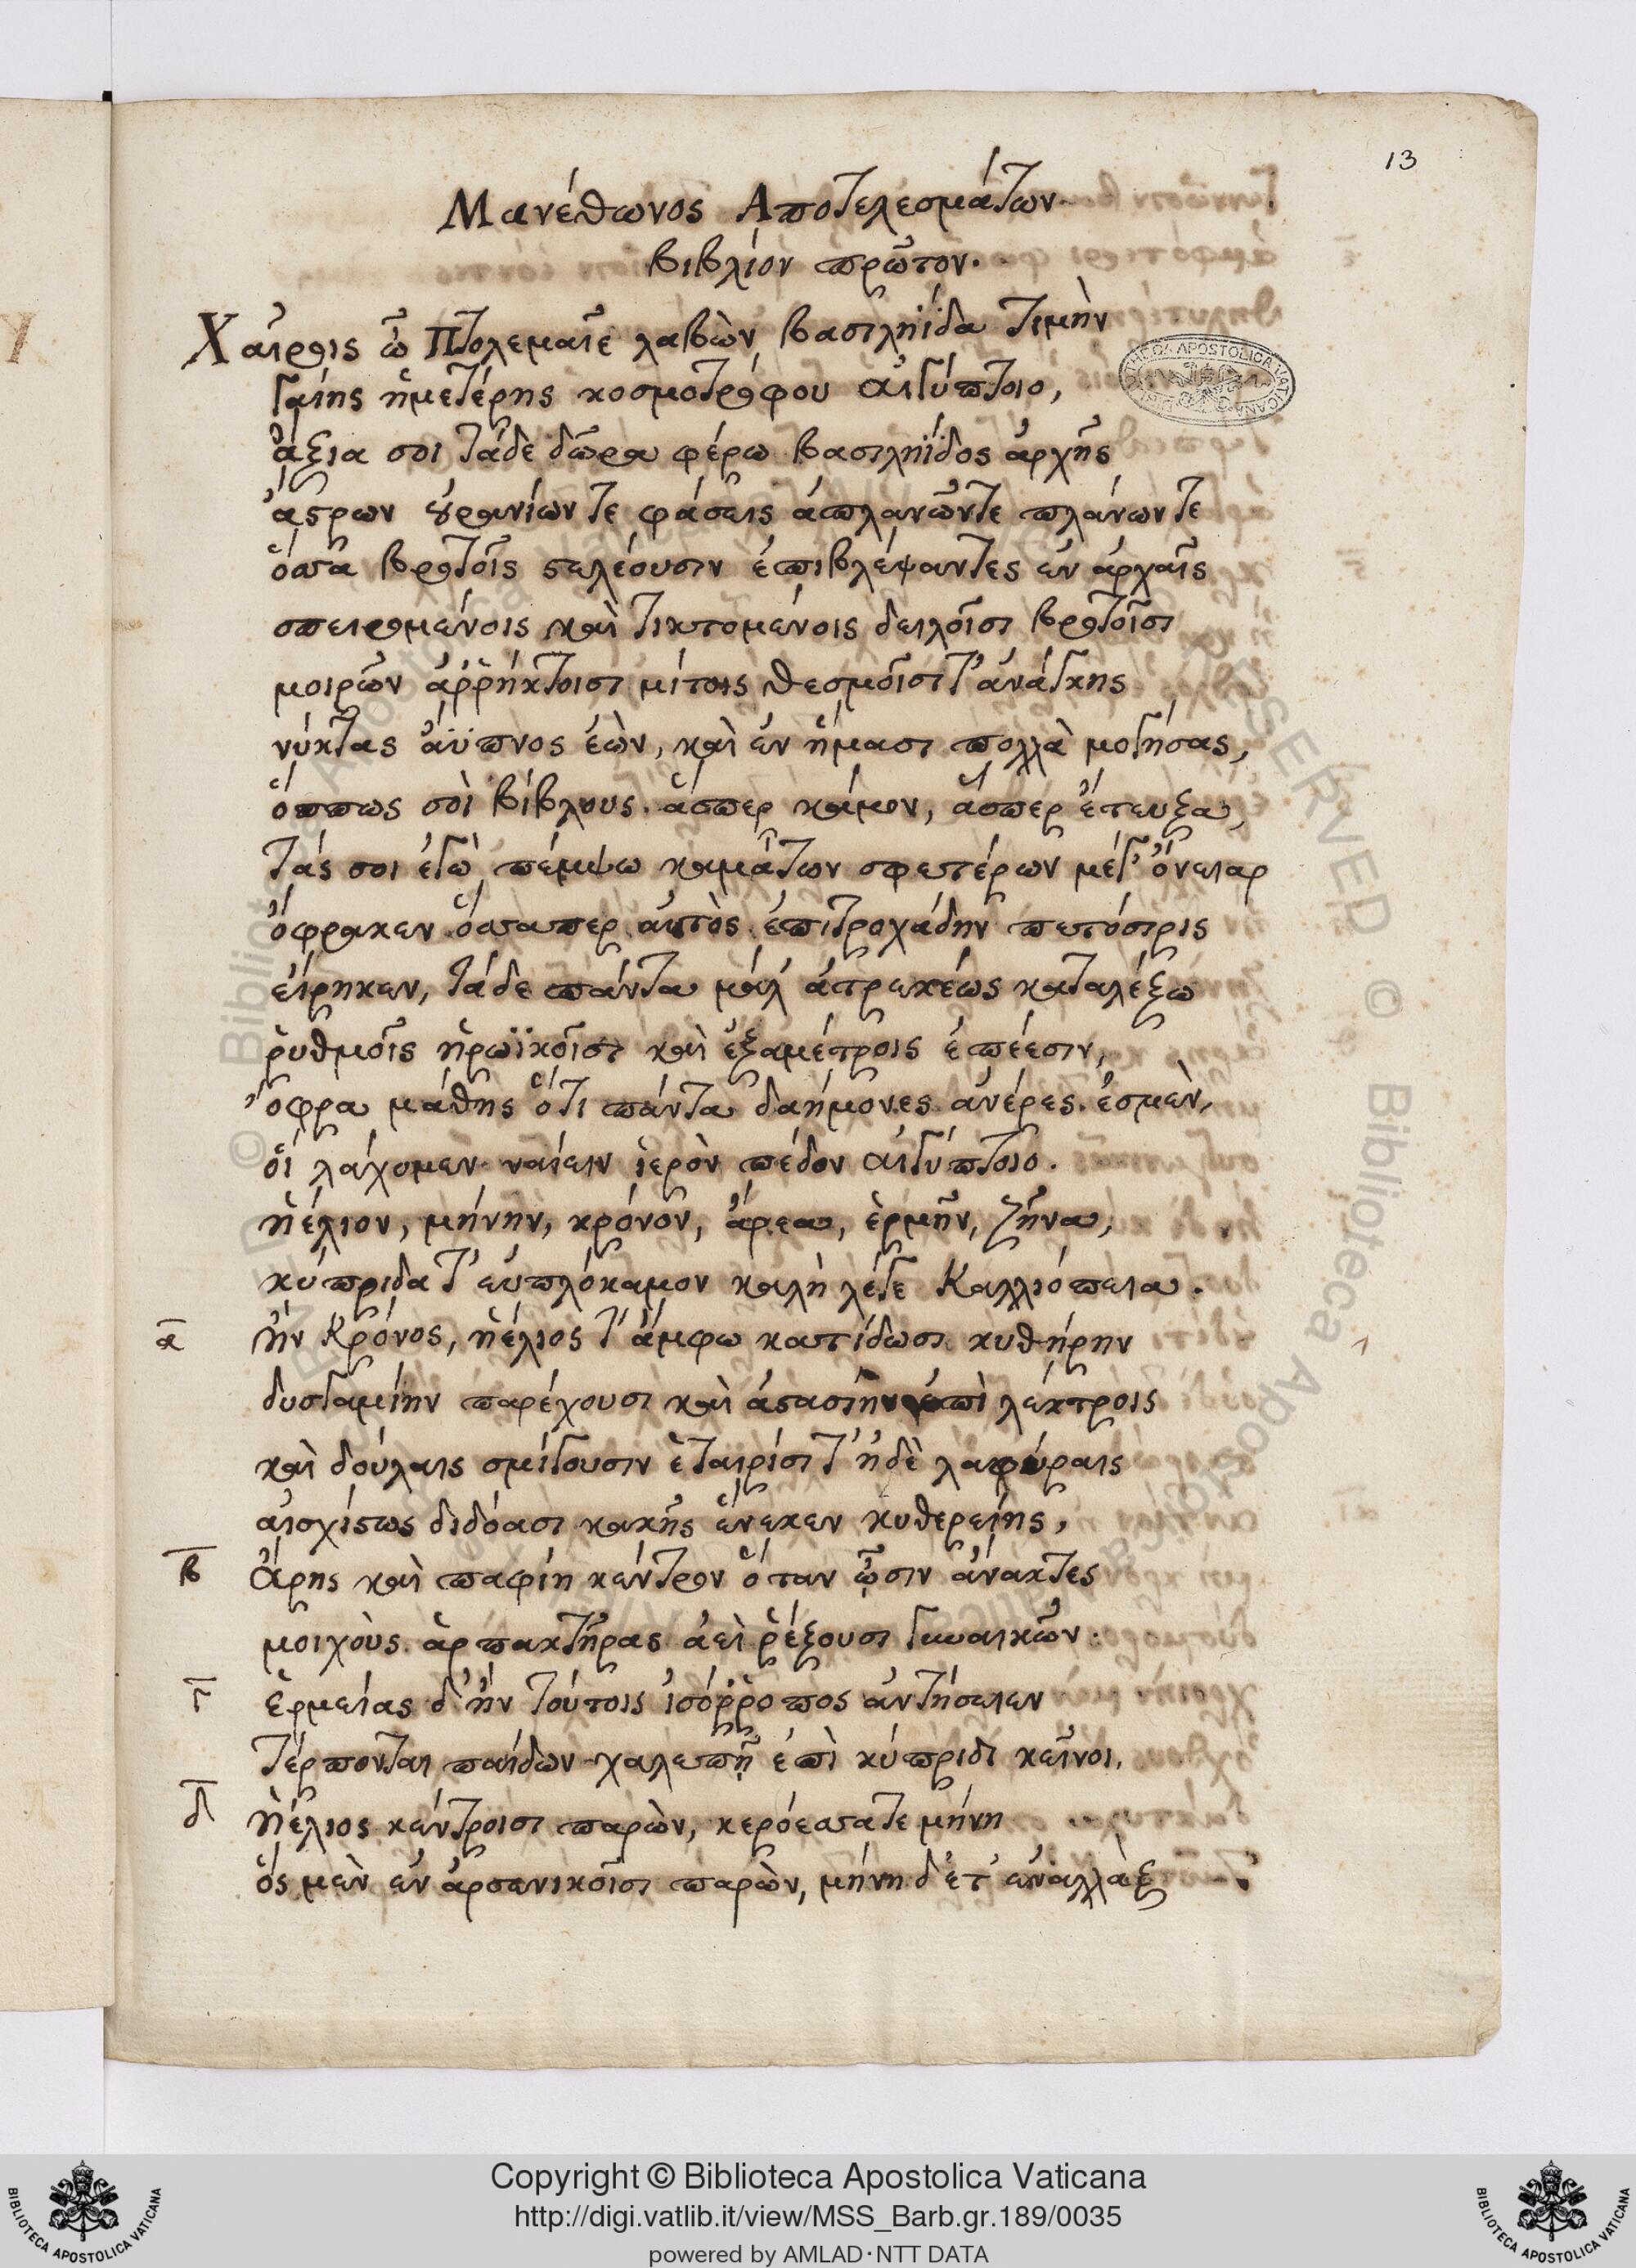 13
Μανέθωνος Αποτελεσμάτων
βιβλίον πρῶτον.
Χαίροις ὦ Πτολεμαῖε λαβὼν βασιληΐδα τιμὴν
γαίης ἡμετέρης κοσμοτρόφου αἰγύπτοιο,
ἄξια σοι τάδε δῶρα φέρω βασιληΐδος ἀρχῆς
ἄστρων οὐρανίων τε φάσεις ἀπλανῶντε πλάνων τε
ὅσσα βροτοῖς τελέουσιν ἐπιβλέψαντες ἐν ἀρχαῖς
σπειρομένοις καὶ τικτομένοις δειλοῖσι βροτοῖσι
μοιρῶν ἀῤῥήκτοισι μίτοις θεσμοῖσί τ' ἀνάγκης
νύκτας ἄϋπνος ἐὼν, καὶ ἐν ἤμασι πολλὰ μογήσας,
ὅππως σοὶ βίβλους. ἅσπερ κάμον, ἅσπερ ἔτευξα,
τάς σοι ἐγὼ πέμψω καμάτων σφετέρων μέγ' ὄνειαρ
ὄφρακεν ὅσσαπερ αὐτὸς ἐπιτροχάδην πετόσιρις
εἴρηκεν, τάδε πάντα μάλ' ἀτρεκέως καταλέξω
ῥυθμοῖς ἡρωϊκοῖσι καὶ ἑξαμέτροις ἐπέεσιν,
ὄφρα μάθῃς ὅτι πάντα δαήμονες ἀνέρες ἐσμὲν,
οἳ λάχομεν ναίειν ἱερὸν πέδον αἰγύπτοιο.
ἠέλιον, μήνην, κρόνον, ἄρεα, ἑρμῆν, ζῆνα,
κύπριδα τ' εὐπλόκαμον καλὴ λέγε Καλλιόπεια.
α ἢν Κρόνος, ἠέλιος τ' ἄμφω κατίδωσι κυθήρην
δυσγαμίην παρέχουσι καὶ ἀστασίην ἐπὶ λέκτροις
καὶ δούλαις σμίγουσιν ἑταιρίσι τ' ἠδὲ λαφύραις
αἰσχίστως διδόασι κακῆς ἕνεκεν κυθερείης,
β ἄρης καὶ παφίη κέντρον ὅταν ὦσιν ἄνακτες
μοιχοὺς ἁρπακτῆρας ἀεὶ ῥέξουσι γυναικῶν.
γ ἑρμείας δ' ἢν τούτοις ἰσόῤῥοπος ἀντήσειεν
τέρπονται παίδων χαλεπῇ ἐπὶ κύπριδι κεῖνοι.
δ ἠέλιος κέντροισι παρὼν, κερόεσσατε μήνη
ὃς μὲν ἐν ἀρσενικοῖσι παρὼν, μήνη δ' ἔτ' ἐναλλὰξ
Copyright © Biblioteca Apostolica Vaticana
http://digi.vatlib.it/view/MSS_Barb.gr.189/0035
powered by AMLAD·NTT DATA
BIBLIOTECA APOSTOLICA VATICANA
BIBLIOTECA APOSTOLICA VATICANA